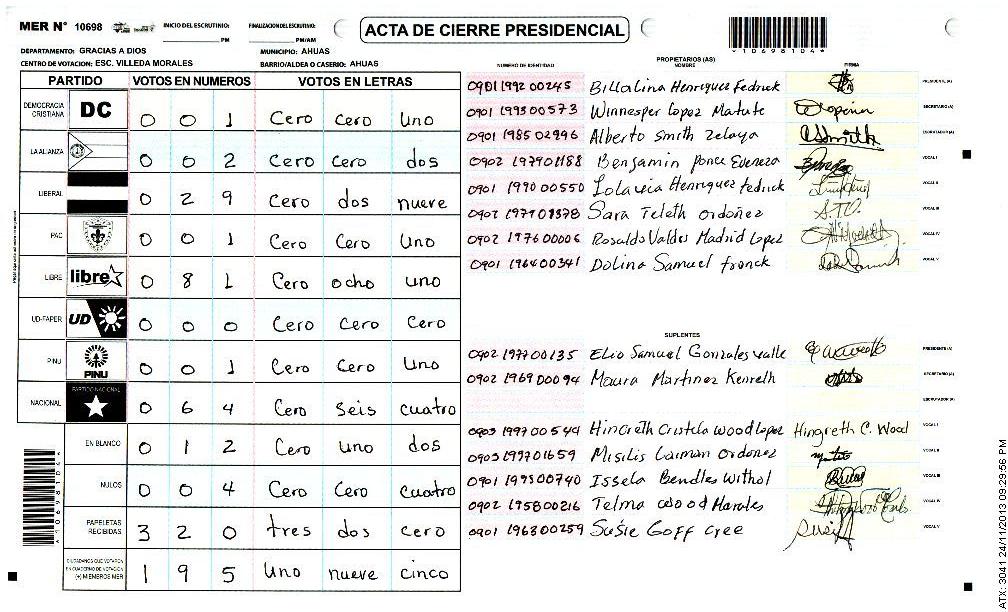 MER N° 10698 INICIO DEL ESCRUTINIO: PM FINALIZACION DEL ESCRUTINIO: PM/AM
ACTA DE CIERRE PRESIDENCIAL
*10698104*
DEPARTAMENTO: GRACIAS A DIOS MUNICIPIO: AHUAS
CENTRO DE VOTACION: ESC. VILLEDA MORALES BARRIO/ALDEA O CASERIO: AHUAS
PARTIDO VOTOS EN NUMEROS VOTOS EN LETRAS
DEMOCRACIA CRISTIANA DC 0 0 1 Cero cero uno
LA ALIANZA 0 0 2 Cero cero dos
LIBERAL 0 2 9 Cero dos nueve
PAC 0 0 1 Cero Cero Uno
LIBRE libre 0 8 1 Cero ocho uno
UD-FAPER UD 0 0 0 Cero Cero Cero
PINU PINU 0 0 1 Cero Cero Uno
NACIONAL PARTIDO NACIONAL 0 6 4 Cero seis cuatro
EN BLANCO 0 1 2 Cero uno dos
NULOS 0 0 4 Cero Cero cuatro
PAPELETAS RECIBIDAS 3 2 0 tres dos cero
CIUDADANOS QUE VOTARON EN CUADERNO DE VOTACION (+) MIEMBROS MER 1 9 5 Uno nueve cinco
PROPIETARIOS (AS)
NUMERO DE IDENTIDAD NOMBRE FIRMA
0901 1992 00245 Billalina Henriquez Fedrick PRESIDENTE (A)
0901 1993 00573 Winnesper Lopez Matute SECRETARIO (A)
0901 1985 02996 Alberto Smith Zelaya ESCRUTADOR (A)
0902 1979 01188 Benjamin Ponce VOCAL I
0901 1990 00550 Henriquez Fedrick VOCAL II
0902 1971 Sara Teleth Ordoñez S.T.O. VOCAL III
0902 1976 00006 Rosaldo Valdes Madrid Lopez VOCAL IV
0901 1964 00341 Dolina Samuel Franck VOCAL V
SUPLENTES
0902 1977 00135 Elio Samuel Gonzales valle PRESIDENTE (A)
0902 1969 00094 Maura Martinez Kenreth SECRETARIO (A)
ESCRUTADOR (A)
0903 1997 00544 Hingreth Cristela Wood Lopez Hingreth C. Wood VOCAL I
0903 1997 01659 Misilis Laiman Ordonez VOCAL II
0901 1993 00740 Issela Bendles Withol VOCAL III
0902 1958 00216 Telma Wood Morales VOCAL IV
0901 1963 00259 Susie Goff Cree Susie VOCAL V
*10698104*
ATX: 3041 24/11/2013 09:29:56 PM